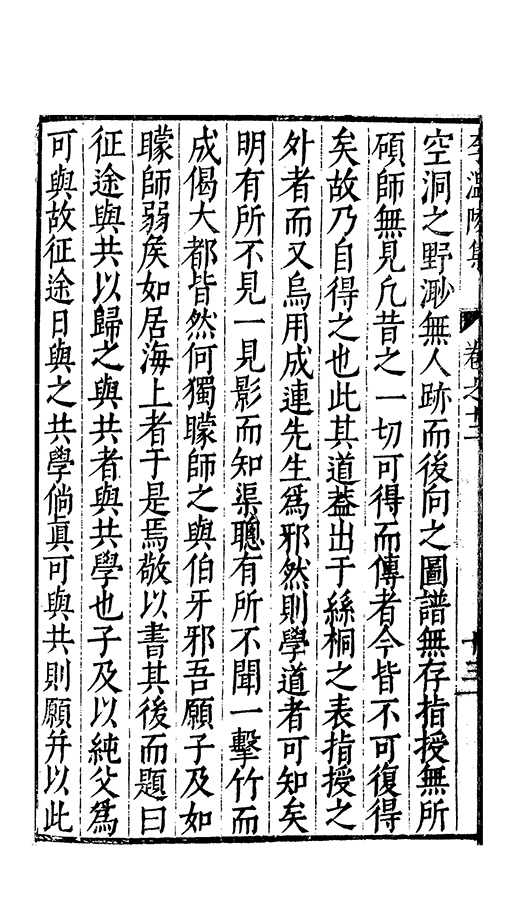 李溫陵集 卷之十二 十三
空洞之野渺無人跡而後向之圖譜無存指授無所
碩師無見凢昔之一切可得而傳者今皆不可復得
矣故乃自得之也此其道葢出于絲桐之表指授之
外者而又烏用成連先生爲邪然則學道者可知矣
明有所不見一見影而知渠聰有所不聞一擊竹而
成偈大都皆然何獨矇師之與伯牙邪吾願子及如
矇師弱矦如居海上者于是焉敬以書其後而題曰
征途與共以歸之與共者與共學也子及以純父爲
可與故征途日與之共學倘眞可與共則願幷以此